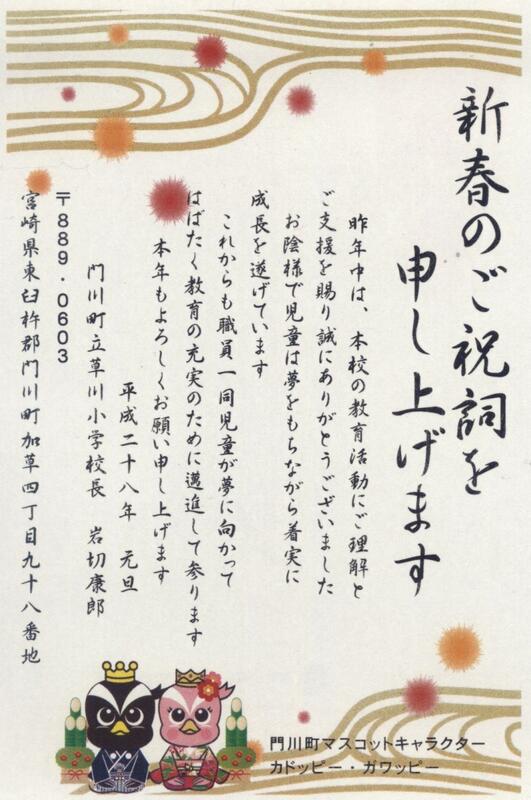 新春のご祝詞を
申し上げます
昨年中は、本校の教育活動にご理解と
ご支援を賜り誠にありがとうございました
お陰様で児童は夢をもちながら着実に
成長を遂げています
これからも職員一同児童が夢に向かって
はばたく教育の充実のために邁進して参ります
本年もよろしくお願い申し上げます
平成二十八年　元旦
門川町立草川小学校長　岩切康郎
〒889・0603
宮崎県東臼杵郡門川町加草四丁目九十八番地
門川町マスコットキャラクター
カドッピー・ガワッピー